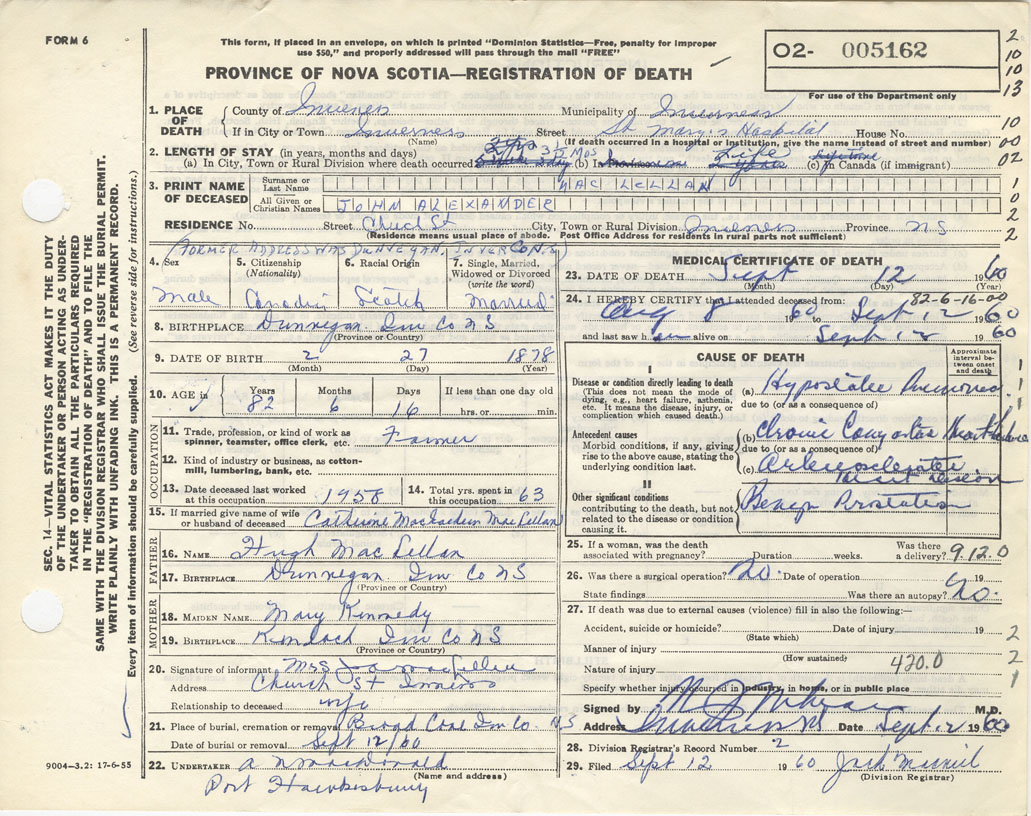 FORM 6
This form, if placed in an envelope, on which is printed "Dominion Statistics—Free, penalty for improper
use $50," and properly addressed will pass through the mail "FREE"
PROVINCE OF NOVA SCOTIA—REGISTRATION OF DEATH
02- 005162
For use of the Department only
2
10
10
13
1. PLACE OF DEATH County of Inverness Municipality of Inverness
If in City or Town Inverness Street St Mary's Hospital House No.
(Name) (If death occurred in a hospital or institution, give the name instead of street and number)
10
00
02
2. LENGTH OF STAY (in years, months and days)
(a) In City, Town or Rural Division where death occurred (b) In Province Life (c) in Canada (if immigrant)
3. PRINT NAME OF DECEASED Surname or Last Name MAC LELLAN
All Given or Christian Names JOHN ALEXANDER
1
0
2
2
RESIDENCE No. Street Church St City, Town or Rural Division Inverness Province NS
Residence means usual place of abode. Post Office Address for residents in rural parts not sufficient)
(FORMER ADDRESS WAS DUNVEGAN, INVER CO N.S.)
4. Sex 5. Citizenship (Nationality) 6. Racial Origin 7. Single, Married, Widowed or Divorced (write the word)
Male Canadian Scotch Married
8. BIRTHPLACE Dunvegan Inv Co NS
(Province or Country)
9. DATE OF BIRTH 2 27 1878
(Month) (Day) (Year)
10. AGE in Years Months Days If less than one day old
82 6 16 hrs. or min.
OCCUPATION
11. Trade, profession, or kind of work as spinner, teamster, office clerk, etc. Farmer
12. Kind of industry or business, as cotton-mill, lumbering, bank, etc.
13. Date deceased last worked at this occupation 1958 14. Total yrs. spent in this occupation 63
15. If married give name of wife or husband of deceased Catherine MacLellan
FATHER
16. NAME Hugh Mac Lellan
17. BIRTHPLACE Dunvegan Inv Co NS
(Province or Country)
MOTHER
18. MAIDEN NAME Mary Kennedy
19. BIRTHPLACE Kinloch Inv Co NS
(Province or Country)
20. Signature of informant Mrs MacLellan
Address Church St Inverness
Relationship to deceased wife
21. Place of burial, cremation or removal Broad Cove Inv Co. N.S
Date of burial or removal Sept 12/60
22. UNDERTAKER MacDonald
(Name and address)
Port Hawkesbury
MEDICAL CERTIFICATE OF DEATH
23. DATE OF DEATH Sept 12 1960
(Month) (Day) (Year)
82-6-16-00
24. I HEREBY CERTIFY that I attended deceased from:
Aug 8 1960 to Sept 12 1960
and last saw h alive on Sept 12 1960
CAUSE OF DEATH
Approximate interval between onset and death
I
Disease or condition directly leading to death
(This does not mean the mode of dying, e.g., heart failure, asthenia, etc. It means the disease, injury, or complication which caused death.)
(a) Hypostatic Pneumonia
due to (or as a consequence of)
Antecedent causes
Morbid conditions, if any, giving rise to the above cause, stating the underlying condition last.
(b) Chronic Congestive Heart Failure
due to (or as a consequence of)
(c) Arteriosclerotic
Heart Disease
II
Other significant conditions
contributing to the death, but not related to the disease or condition causing it.
Benign Prostatism
1
1
1
25. If a woman, was the death associated with pregnancy? Duration weeks. Was there a delivery? 912.0
26. Was there a surgical operation? No. Date of operation 19
State findings Was there an autopsy? No.
27. If death was due to external causes (violence) fill in also the following:—
Accident, suicide or homicide? Date of injury 19
(State which)
Manner of injury
(How sustained)
Nature of injury 420.0
2
2
1
Specify whether injury occurred in industry, in home, or in public place
Signed by M.D.
Address Inverness NS Date Sept. 12 1960
28. Division Registrar's Record Number 2
29. Filed Sept 12 1960 Jack
(Division Registrar)
SEC. 14—VITAL STATISTICS ACT MAKES IT THE DUTY
OF THE UNDERTAKER OR PERSON ACTING AS UNDER-
TAKER TO OBTAIN ALL THE PARTICULARS REQUIRED
IN THE "REGISTRATION OF DEATH" AND TO FILE THE
SAME WITH THE DIVISION REGISTRAR WHO SHALL ISSUE THE BURIAL PERMIT.
WRITE PLAINLY WITH UNFADING INK. THIS IS A PERMANENT RECORD.
Every item of information should be carefully supplied. (See reverse side for instructions.)
9004—3.2: 17-6-55